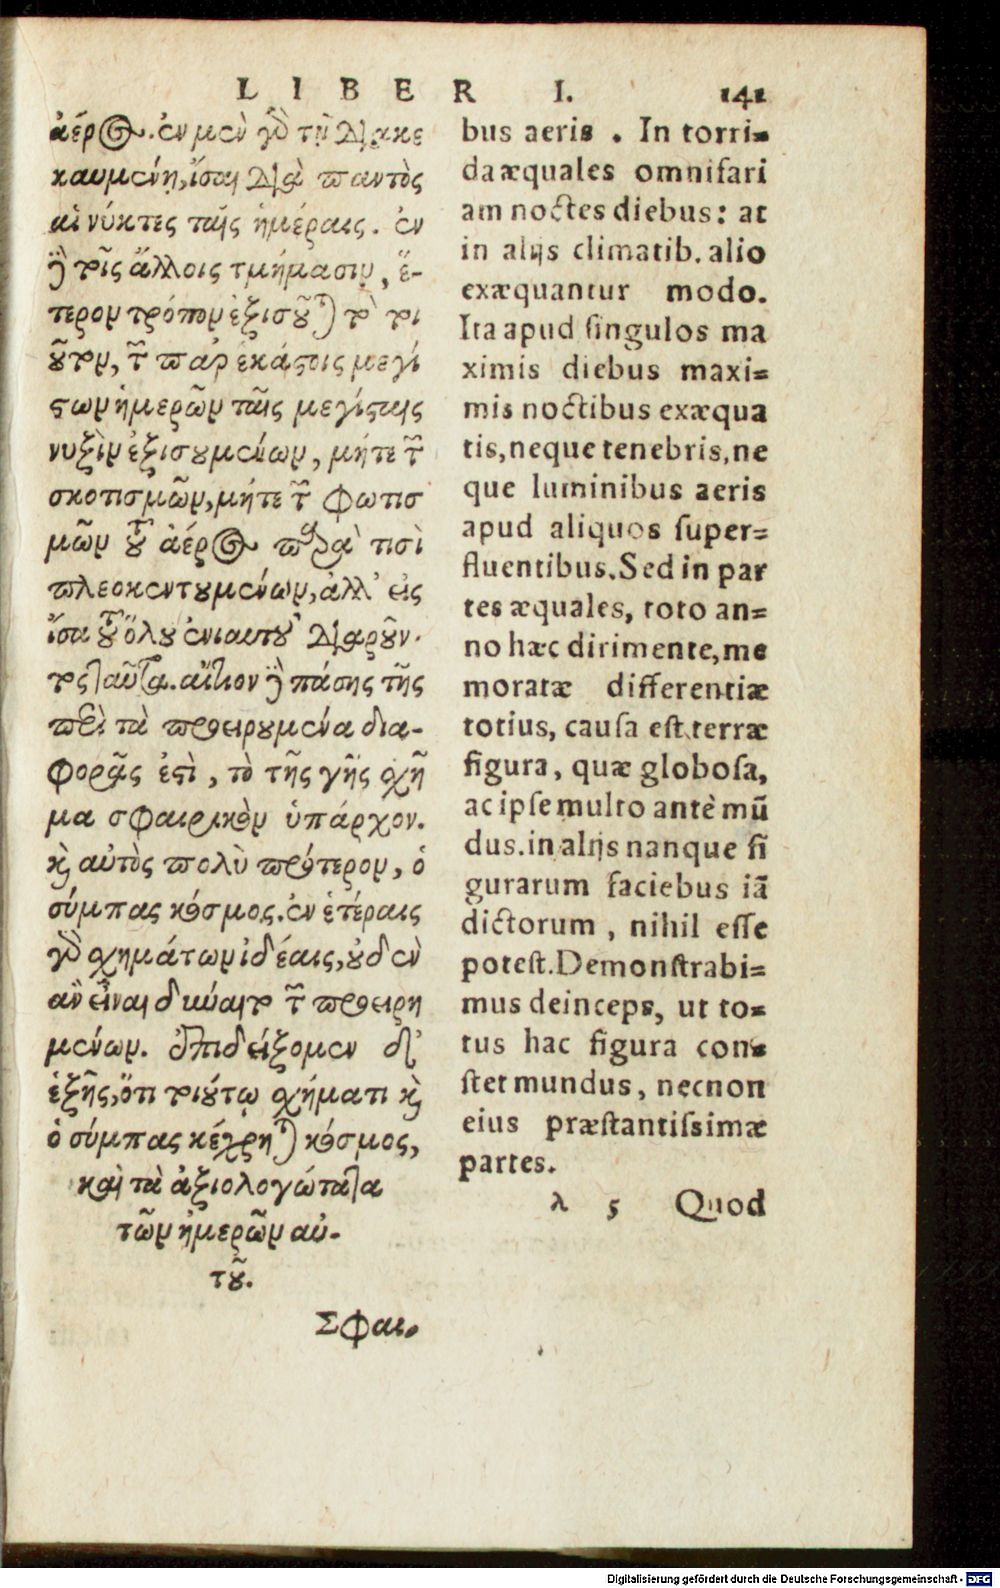 LIBER I. 141
ἀέρος. ἐν μὲν γὸ τῇ διακε
καυμένῃ, ἴσαι διὰ παντὸς
αἱ νύκτες ταῖς ἡμέραις. ἐν
δὲ τοῖς ἄλλοις τμήμασιν, ἕ-
τερον τρόπον ἐξισοῦται τὸ τοι
οῦτον, τῶν παρ' ἑκάστοις μεγί
στων ἡμερῶν ταῖς μεγίσταις
νυξὶν ἐξισουμένων, μήτε τῶν
σκοτισμῶν, μήτε τῶν φωτισ
μῶν τοῦ ἀέρος παρά τισὶ
πλεοκεντουμένων, ἀλλ' εἰς
ἴσα τοῦ ὅλου ἐνιαυτοῦ διαροῦν.
τος ταῦτα. αἴτιον δὲ πάσης τῆς
περὶ τὰ προειρουμένα δια-
φορᾶς ἐστὶ, τὸ τῆς γῆς σχῆ
μα σφαιρικὸν ὑπάρχον.
καὶ αὐτὸς πολὺ πρότερον, ὁ
σύμπας κόσμος. ἐν ἑτέραις
γὸ σχημάτων ἰδέαις, οὐδὲν
ἂν εἶναι δύναιτο τῶν προειρη
μένων. ἐπιδείξομεν δ'
ἑξῆς, ὅτι τοιούτῳ σχήματι καὶ
ὁ σύμπας κέχρηται κόσμος,
καὶ τὰ ἀξιολογώτατα
τῶν ἡμερῶν αὐ-
τοῦ.
Σφαι.
bus aeris . In torri=
da æquales omnifari
am noctes diebus: at
in alijs climatib. alio
exæquantur modo.
Ita apud singulos ma
ximis diebus maxi=
mis noctibus exæqua
tis, neque tenebris, ne
que luminibus aeris
apud aliquos super=
fluentibus. Sed in par
tes æquales, toto an=
no hæc dirimente, me
moratæ differentiæ
totius, causa est terræ
figura, quæ globosa,
ac ipse multo antè mū
dus. in alijs nanque fi
gurarum faciebus iā
dictorum , nihil esse
potest. Demonstrabi=
mus deinceps, ut to=
tus hac figura con=
stet mundus, necnon
eius præstantissimæ
partes.
λ 5 Quod
Digitalisierung gefördert durch die Deutsche Forschungsgemeinschaft - DFG